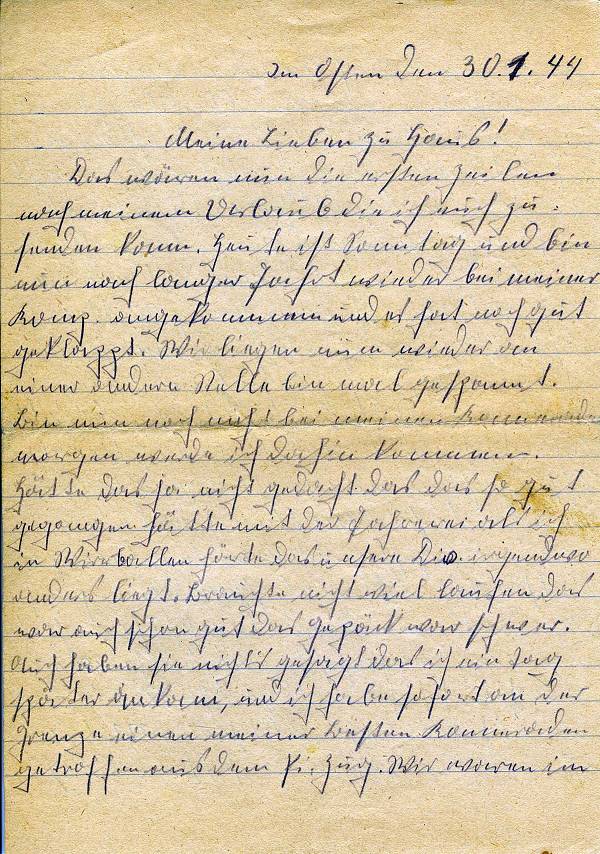 Im Osten den 30.1.44
Meine Lieben zu Haus!
Das wären nun die ersten Zeilen
nach meinem Urlaub die ich euch zu=
senden kann. Heute ist Sonntag und bin
nun nach langer Fahrt wieder bei meiner
Komp. angekommen und es hat noch gut
geklappt. Wir liegen nun wieder an
einer andern Stelle bin mal gespannt.
Bin nun noch nicht bei meinen Kameraden
morgen werde ich dahin kommen.
Hätte das ja nicht gedacht das das so gut
gegangen hätte mit der Fahrerei als ich
in Wirballen hörte das unsere Div. irgendwo
anders liegt. Brauchte nicht viel laufen das
war auch schon gut das Gepäck war schwer.
Auch haben sie nichts gesagt das ich ein Tag
später ankam, und ich habe sofort an der
Grenze einen meiner besten Kameraden
getroffen aus dem Pi. Zug. Wir waren im